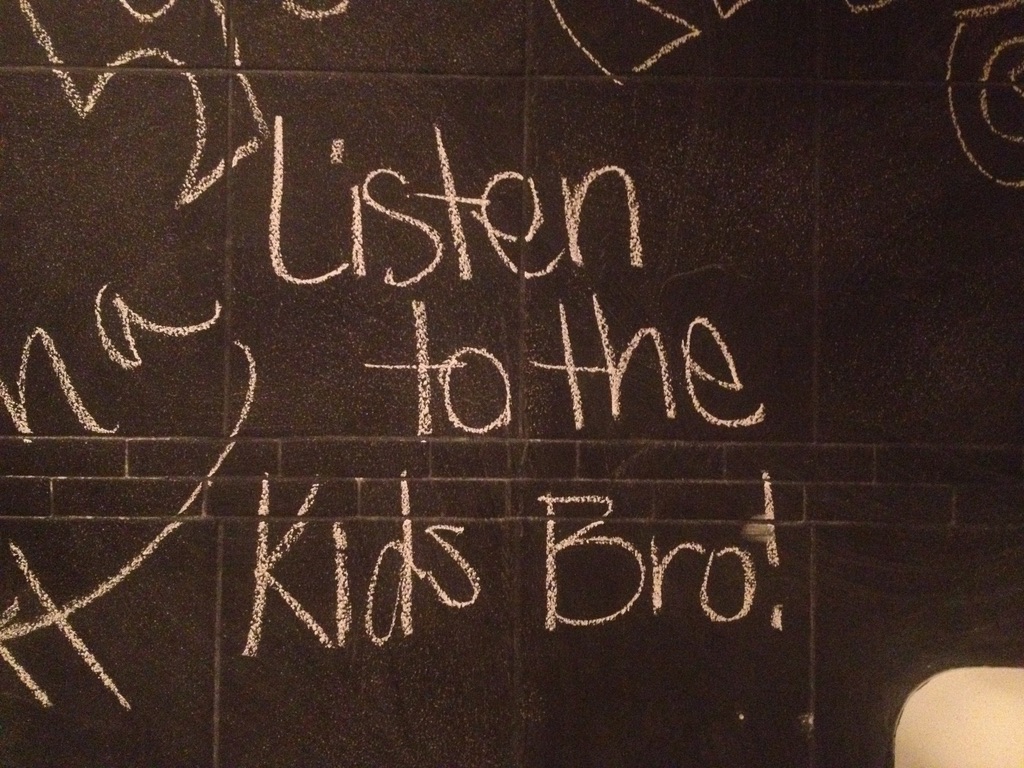 Listen
to the
Kids Bro!